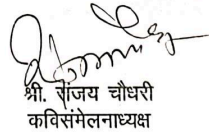 श्री. संजय चौधरी
कविसंमेलनाध्यक्ष